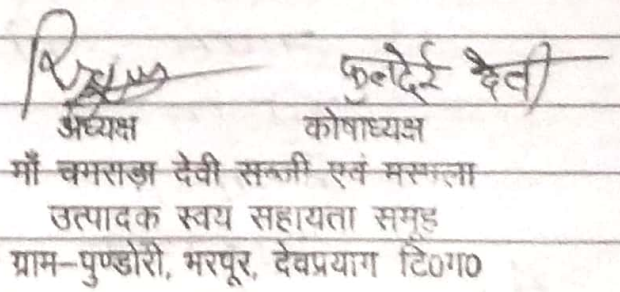 फुलदेई देवी
अध्यक्ष कोषाध्यक्ष
माँ चमराडा देवी सब्जी एवं मसाला
उत्पादक स्वय सहायता समूह
ग्राम-पुण्डोरी, भरपूर, देवप्रयाग टि0ग0